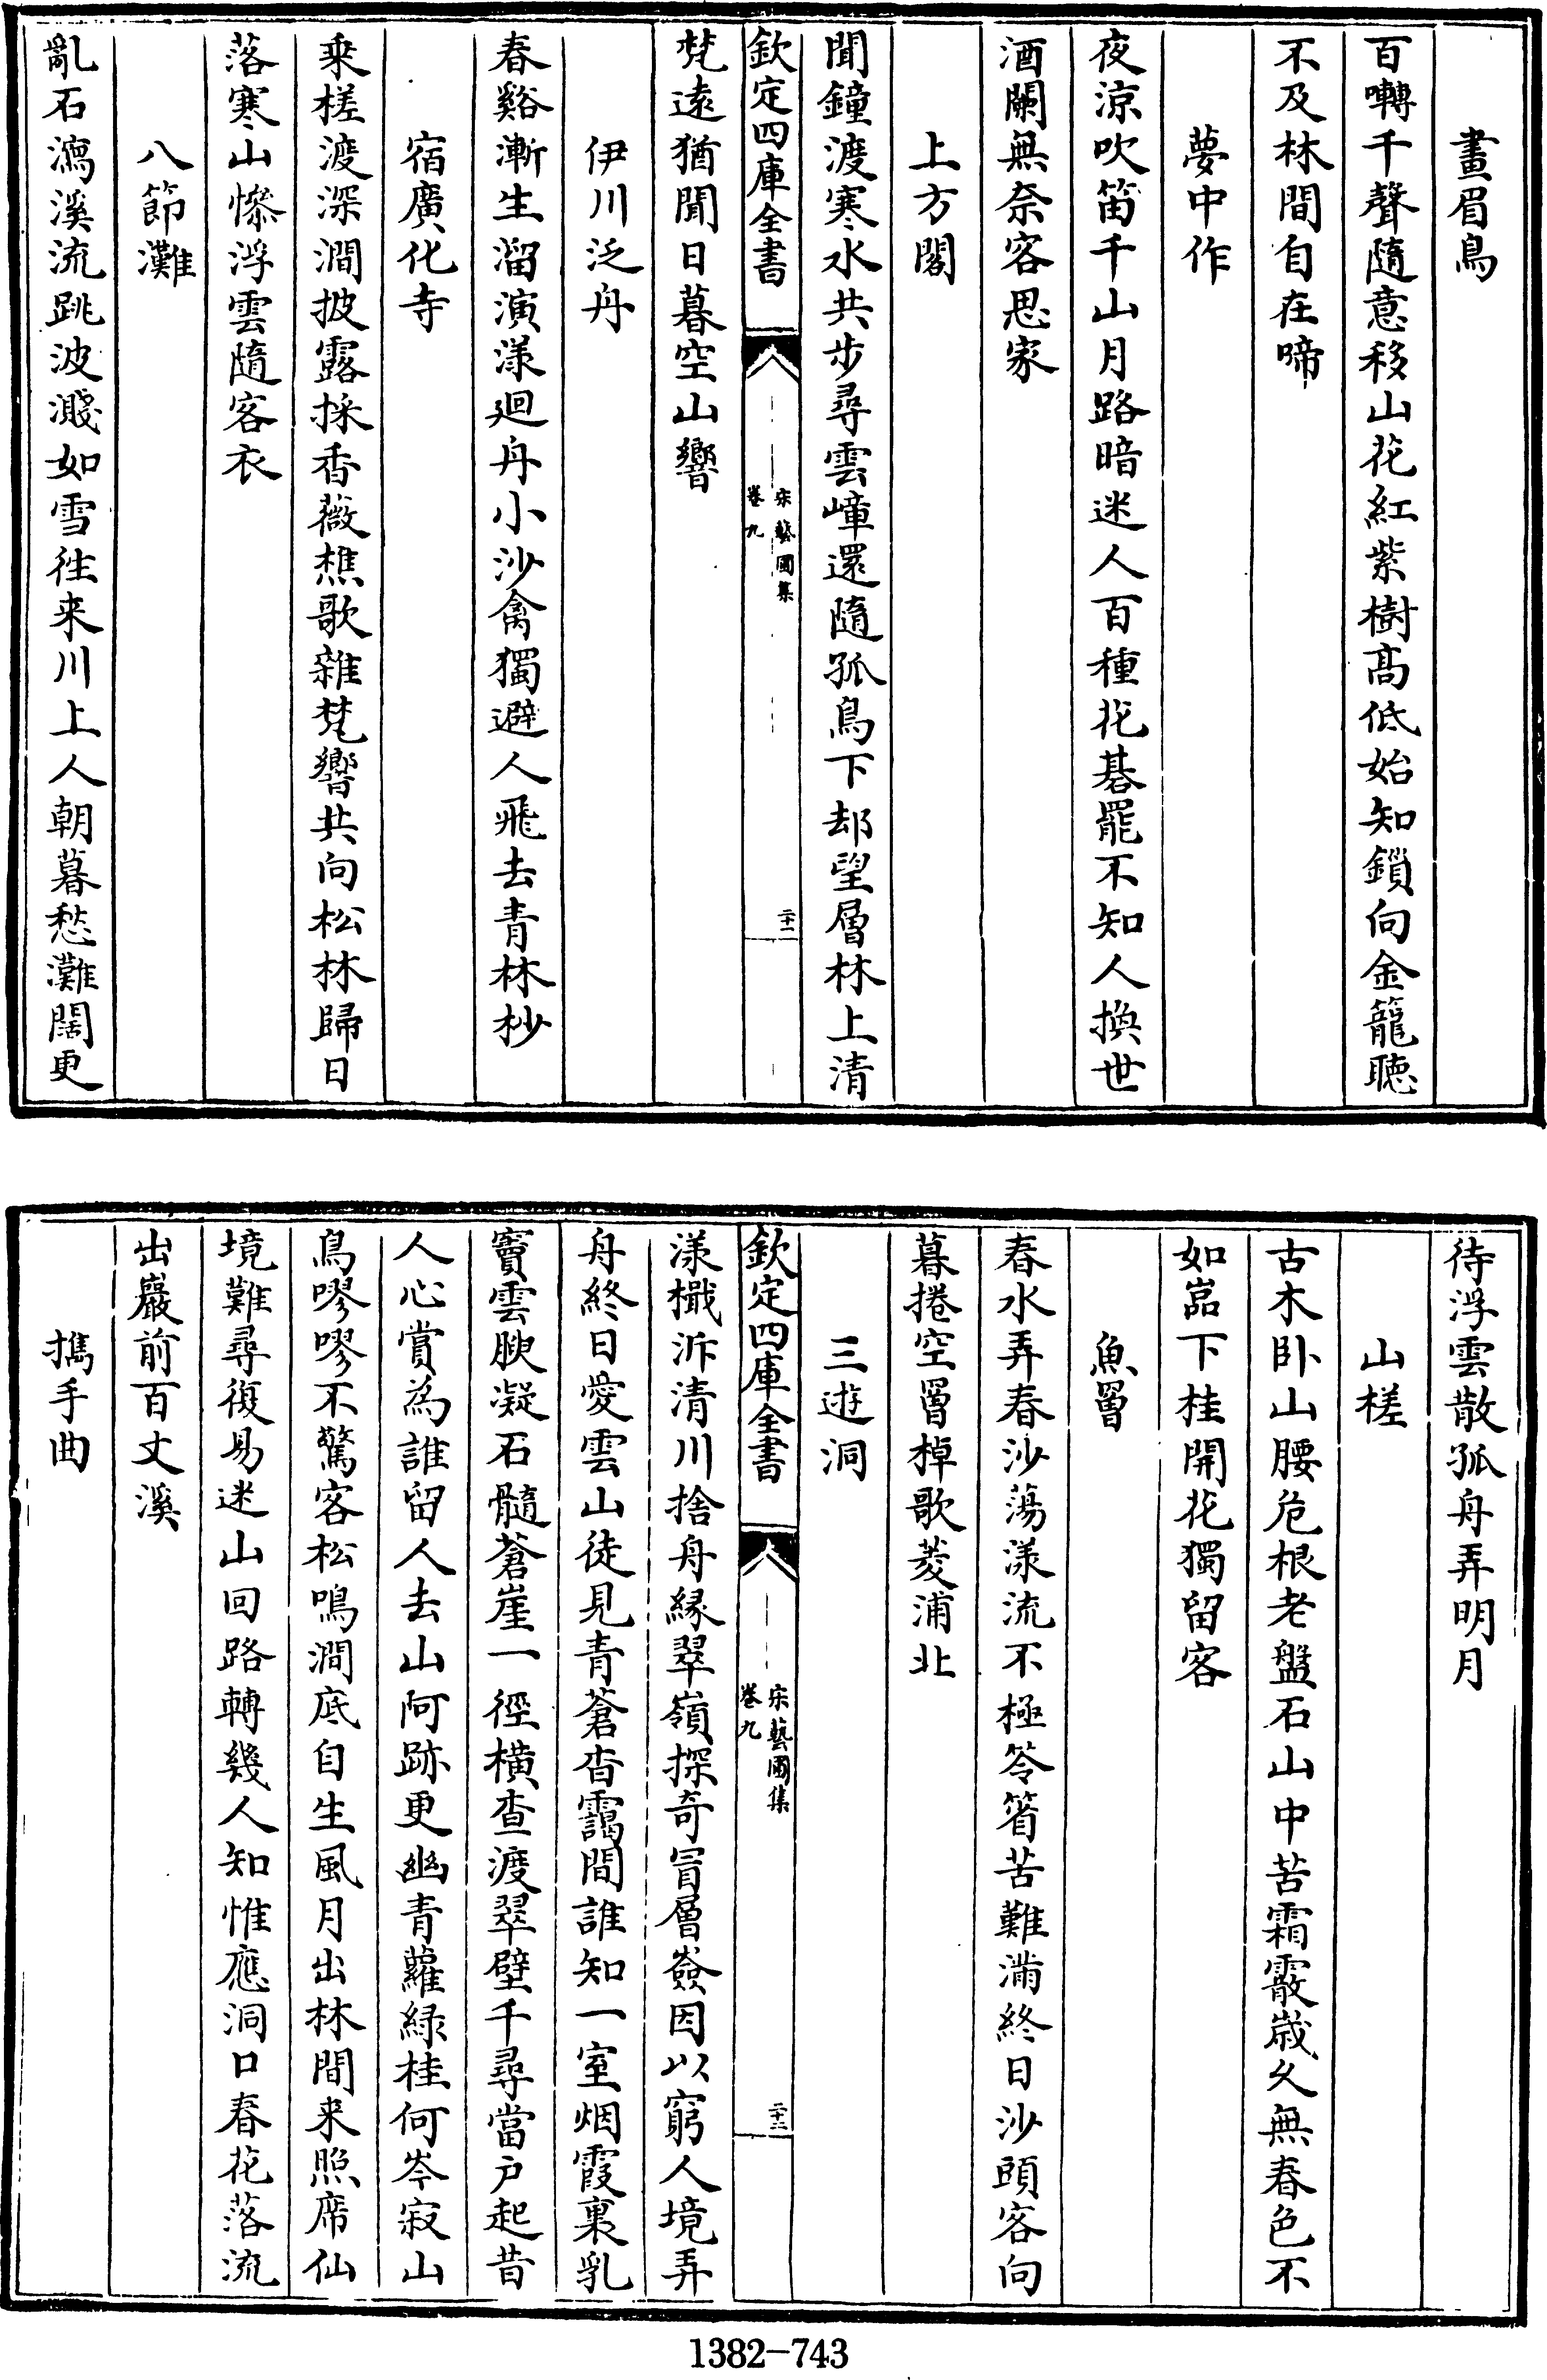 畫眉鳥
百囀千聲隨意移山花紅紫樹髙低始知鎖向金籠聴
不及林間自在啼
夢中作
夜涼吹笛千山月路暗迷人百種花碁罷不知人換世
酒闌無奈客思家
上方閣
聞鐘渡寒水共步尋雲嶂還隨孤鳥下却望層林上清
欽定四庫全書
宋藝圃集
卷九
二十一
梵遠猶聞日暮空山響
伊川泛舟
春谿漸生溜演漾迴舟小沙禽獨避人飛去青林杪
宿廣化寺
乗槎渡深澗披露採香薇樵歌雜梵響共向松林歸日
落寒山慘浮雲隨客衣
八節灘
亂石瀉溪流跳波濺如雪徃来川上人朝暮愁灘闊更
待浮雲散孤舟弄明月
山槎
古木卧山腰危根老盤石山中苦霜霰歳久無春色不
如嵓下桂開花獨留客
魚罾
春水弄春沙蕩漾流不極笭箵苦難滿終日沙頭客向
暮捲空罾棹歌菱浦北
三逰洞
欽定四庫全書
宋藝圃集
卷九
二十二
漾檝泝清川捨舟緣翠嶺探奇冒層嶮因以窮人境弄
舟終日愛雲山徒見青蒼杳靄間誰知一室烟霞裏乳
竇雲腴凝石髓蒼崖一徑橫查渡翠壁千尋當户起昔
人心賞為誰留人去山阿跡更幽青蘿緑桂何岑寂山
鳥嘐嘐不驚客松鳴澗底自生風月出林間来照席仙
境難尋復易迷山回路轉幾人知惟應洞口春花落流
出巖前百丈溪
擕手曲
1382-743